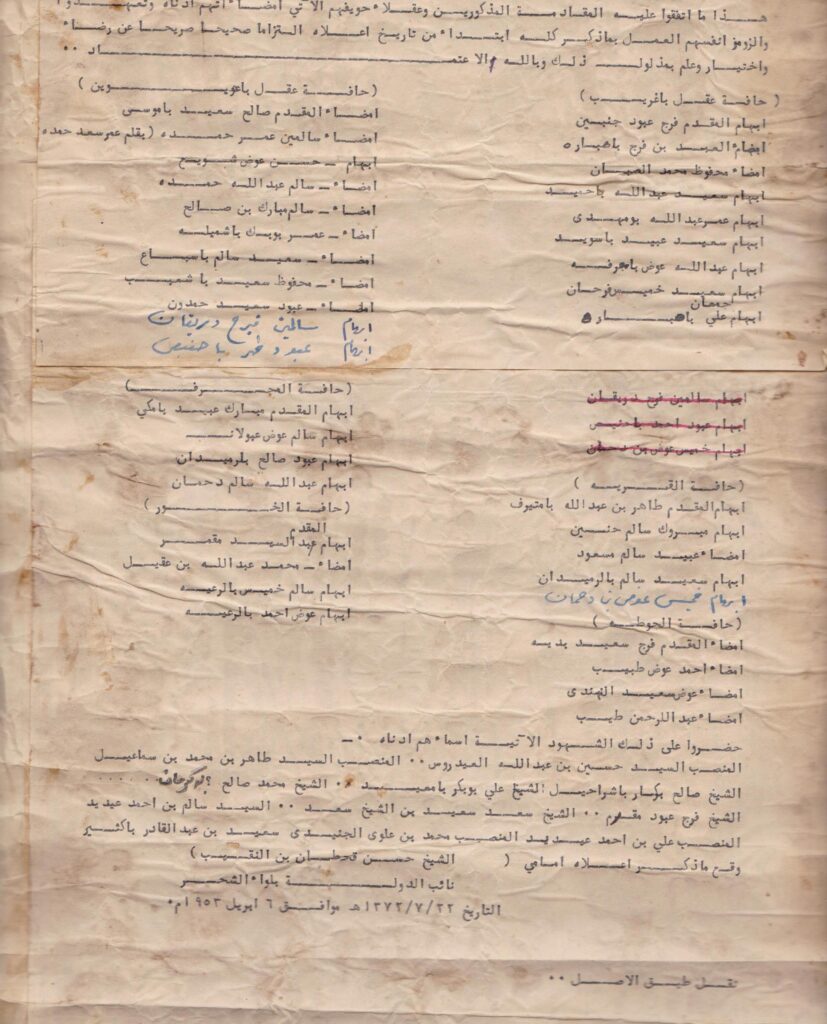 هذا ما اتفقوا عليه المقادمة المذكورين وعقلاء حويفهم الآتي امضاءاتهم ادناه وتعهدوا
والزموز انفسهم العمل بماذكر كله ابتداء من تاريخ اعلاه التزاما صحيحا صريحا عن رضاء
واختيار وعلم بمدلول ذلك وبالله والاعتماد ..
( حافة عقل باغريب )
ابهام المقدم فرج عبود جنيين
امضاء العبد بن فرج باصباره
امضاء محفوظ محمد الصبان
ابهام سعيد عبدالله باحميد
ابهام عمر عبدالله بومهدى
ابهام سعيد عبيد باسويد
ابهام عبدالله عوض بامجرفه
ابهام سعيد خميس فرحان
جمعان
ابهام علي باصباره
(حافة عقل باعوين )
امضاء المقدم صالح سعيد باموسى
امضاء سالمين عمر حمده (بقلم عمر سعد حمده
ابهام – حسن عوض شويع
امضاء – سالم عبدالله حمده
امضاء – سالم مبارك بن صالح
امضاء – عمر بوبك باشميله
امضاء – سعيد سالم باسباع
امضاء – محفوظ سعيد باشعيب
امضاء – عبود سعيد حمدون
ابهام سالمين فرج دريقان
ابهام عبود احمد باحنيص
ابهام سالمين فرج دويقان
ابهام عبود احمد باحنيص
ابهام خميس عوض بن دحمان
(حافة القريه )
ابهام المقدم طاهر بن عبدالله بامتيرف
ابهام مبروك سالم حنين
امضاء عبيد سالم مسعود
ابهام سعيد سالم بالرميدان
ابهام خميس عوض با دحمان
(حافة الحوطه )
امضاء المقدم فرج سعيد يديه
امضاء احمد عوض طبيب
امضاء عوض سعيد الهندى
امضاء عبدالرحمن طيب
(حافة المجرف)
ابهام المقدم مبارك عبيد بامكي
ابهام سالم عوض عبولان
ابهام عبود صالح بلرميدان
ابهام عبدالله سالم دحمان
(حافة الخور)
المقدم
ابهام عبدالسيد مقمر
امضاء – محمد عبدالله بن عقيل
ابهام سالم خميس بالرعيه
ابهام عوض احمد بالرعيه
حضروا على ذلك الشهود الآتية اسماءهم ادناه .–
المنصب السيد حسين بن عبدالله العيدروس .. المنصب السيد طاهر بن محمد بن سماعيل
الشيخ صالح بكار باشراحيل الشيخ علي بوبكر بامعيد .. الشيخ محمد صالح ؟ .....
الشيخ فرج عبود مقرم .. الشيخ سعد سعيد بن الشيخ سعد .. السيد سالم بن احمد عيديد
المنصب علي بن احمد عيديد المنصب محمد بن علوى الجنيدى سعيد بن عبد القادر باكثير
وقع ماذكر اعلاه امامي ( الشيخ حسن قحطان بن النقيب)
نائب الدولة بلواء الشحر
التاريخ ١٣٧٢/٧/٢٢هـ موافق ٦ ابريل ١٩٥٣م.
نقل طبق الاصل ..